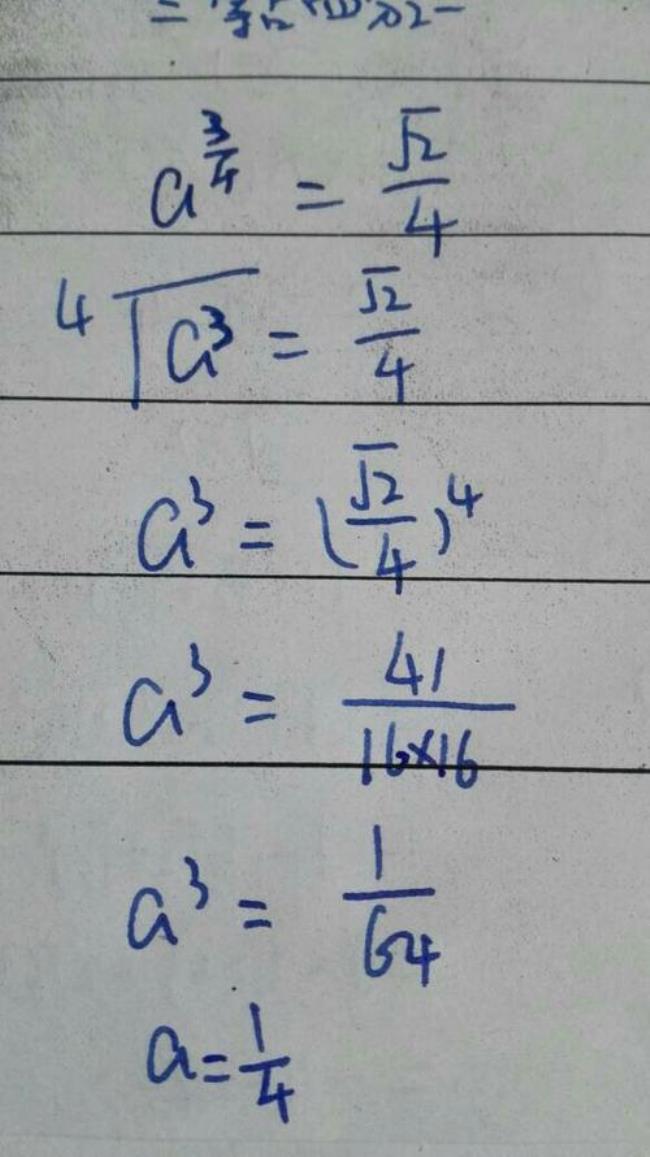 =
a^{\frac{3}{4}} = \frac{\sqrt{2}}{4}
\sqrt[4]{a^3} = \frac{\sqrt{2}}{4}
a^3 = (\frac{\sqrt{2}}{4})^4
a^3 = \frac{41}{16×16}
a^3 = \frac{1}{64}
a = \frac{1}{4}